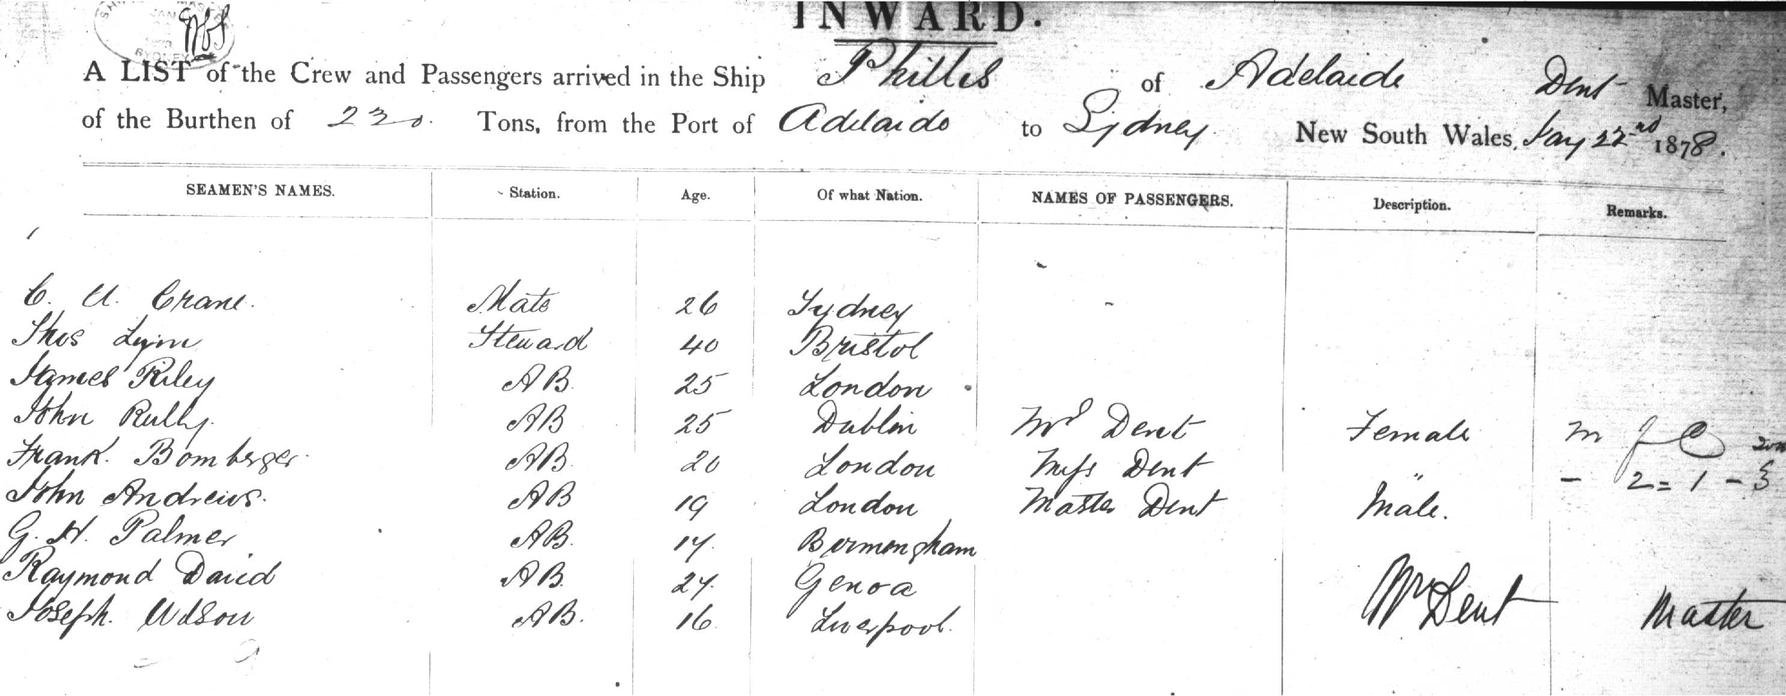 INWARD.
A LIST of the Crew and Passengers arrived in the Ship Phillis of Adelaide Dent Master,
of the Burthen of 230. Tons, from the Port of Adelaide to Sydney New South Wales, 22nd 1878.
SEAMEN'S NAMES. Station. Age. Of what Nation. NAMES OF PASSENGERS. Description. Remarks.
C. A. Crane. Mate 26 Sydney
Thos Lynn Steward 40 Bristol
James Riley AB. 25 London
John Rully. AB 25 Dublin Mrs Dent Female
Frank. Bomberger. AB. 20 London Miss Dent "
John Andrews. AB 19 London Master Dent Male.
G. H. Palmer AB. 17. Birmengham
Raymond David AB. 27. Genoa
Joseph. Udson AB. 16. Liverpool. Wm Dent Master